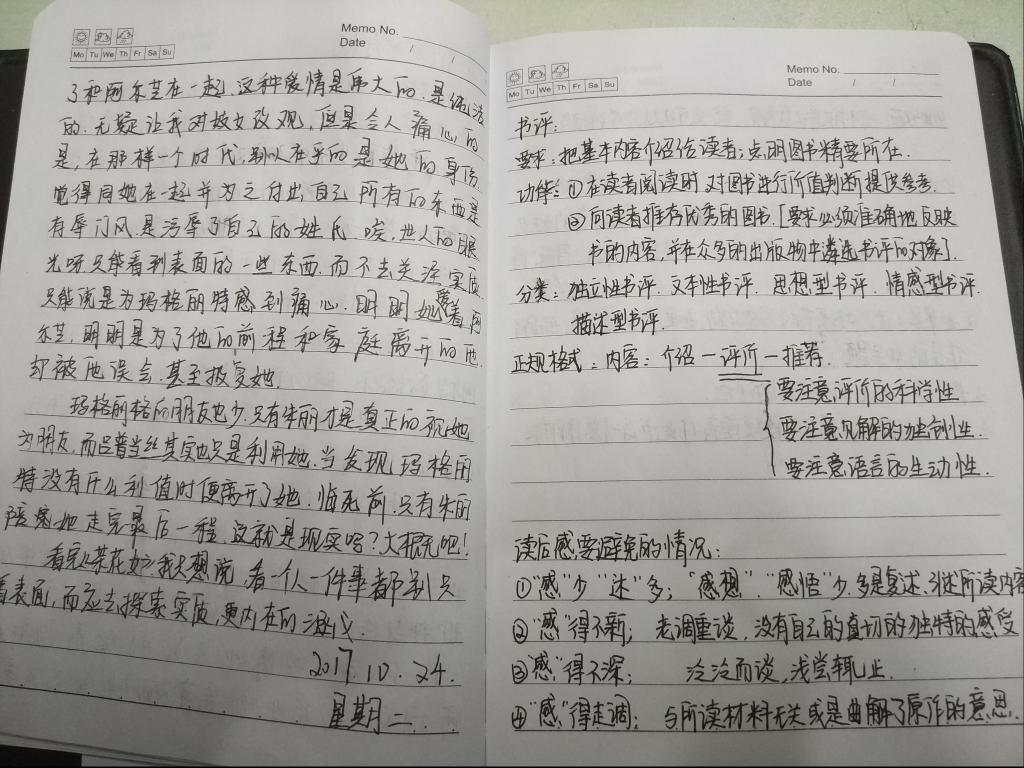 Memo No.
Date / /
Mo Tu We Th Fr Sa Su
了和阿尔芒在一起,这种爱情是伟大的,是纯洁
的.无疑让我对妓女改观,但是令人痛心的
是,在那样一个时代,别人在乎的是她的身份.
觉得同她在一起并为之付出自己所有的东西是
有辱门风.是污辱了自己的姓氏.唉,世人的眼
光呀只能看到表面的一些东西.而不去关注实质.
只能说是为玛格丽特感到痛心.明明她爱着阿
尔芒,明明是为了他的前程和家庭离开的他.
却被他误会.甚至报复她.
玛格丽特的朋友也少.只有朱丽才是真正的视她
为朋友,而吕普当丝其实也只是利用她.当发现玛格丽
特没有什么利值时便离开了她.临死前.只有朱丽
陪着她走完最后一程.这就是现实吗?大概是吧!
看完《茶花女》我只想说,看一个人一件事都别只
看表面,而应去探索实质,更内在的涵义.
2017.10.24.
星期二.
Memo No.
Date / /
Mo Tu We Th Fr Sa Su
书评:
要求:把基本内容介绍给读者;点明图书精要所在.
功能:①在读者阅读时,对图书进行价值判断提供参考.
②向读者推荐优秀的图书.[要求必须准确地反映
书的内容,并在众多的出版物中遴选书评的对象].
分类:独立性书评.文本性书评.思想型书评.情感型书评.
描述型书评.
正规格式:内容:介绍—评价—推荐.
要注意评价的科学性.
要注意见解的独创性.
要注意语言的生动性.
读后感要避免的情况:
①"感"少"述"多;"感想"."感悟"少.多是复述、引述所读内容
②"感"得不新;老调重谈,没有自己的真切的独特的感受
③"感"得不深;泛泛而谈,浅尝辄止.
④"感"得走调;与所读材料无关或是曲解了原作的意思.